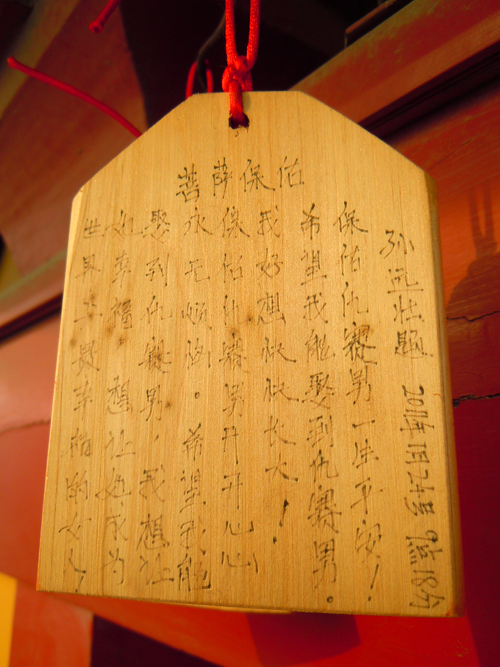 菩萨保佑
保佑仇赛男一生平安！
希望我能娶到仇赛男。
我好想快快长大！
保佑仇赛男开开心心
永无烦恼。希望我能
娶到仇赛男，我想让
她幸福 想让她成为
世界上最幸福的女人
孙 壮题 2011年1月24号 9点18分